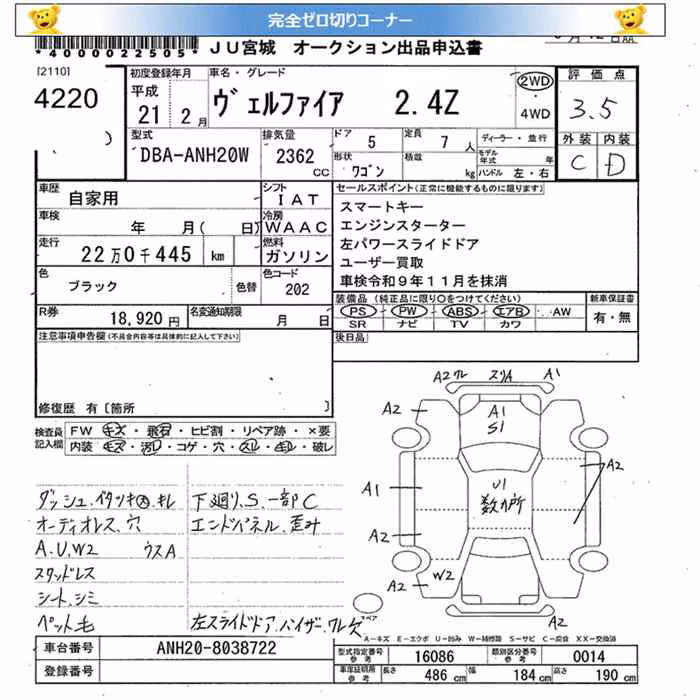 完全ゼロ切りコーナー
*4000022505* JU宮城 オークション出品申込書
[2110]
4220
初度登録年月
平成
21 2月
車名・グレード
ヴェルファイア 2.4Z
2WD
・
4WD
評価点
3.5
外装 内装
C D
型式
DBA-ANH20W
排気量
2362
CC
ドア 5
定員 7人
形状 ワゴン
積載 kg
ディーラー・並行
モデル年式 年
ハンドル 左・右
車歴 自家用
シフト IAT
車検 年 月( 日)
冷房 WAAC
走行 22万0千445 km
燃料 ガソリン
色 ブラック
色替
色コード 202
R券 18,920円
名変通知期限 月 日
セールスポイント(正常に機能するものに限ります)
スマートキー
エンジンスターター
左パワースライドドア
ユーザー買取
車検令和9年11月を抹消
装備品 (純正品に限り○をつけてください)
PS PW ABS エアB AW
SR ナビ TV カワ
新車保証書
有・無
後日品
注意事項申告欄(不具合内容等は具体的に記入して下さい)
修復歴 有〔箇所 〕
検査員記入欄
FW キズ・飛石・ヒビ割・リペア跡・×要
内装 キズ・汚レ・コゲ・穴・スレ・キレ・破レ
ダッシュ.イタツキ大.キレ
オーディオレス.穴
A.U.W2 ウスA
スタッドレス
シート.シミ
ペット毛
下廻り.S.一部C
エンドパネル.歪み
左スライドドア.バイザー.ワレ
A2 ワレ スリA A1
A2
A1
S1
A1
U1
数ヶ所
A2
A2
A2
W2
A2
スペア
A-キズ E-エクボ U-凹み W-補修跡 S-サビ C-腐食 XX-交換済
車台番号 ANH20-8038722
登録番号
型式指定番号 参考 16086
類別区分番号 参考 0014
車庫証明用 参考 長さ 486cm 幅 184cm 高さ 190cm